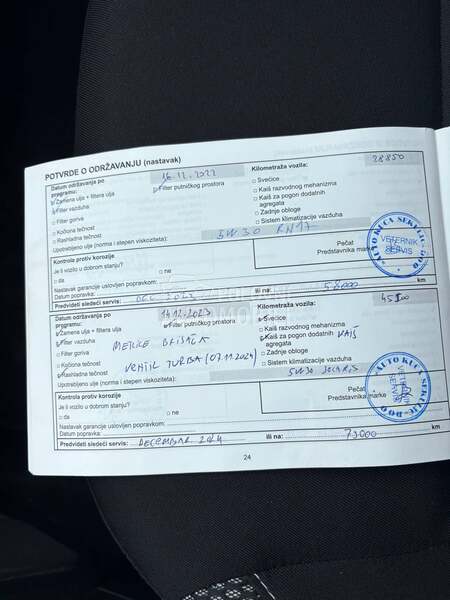 POTVRDE O ODRŽAVANJU (nastavak)
Datum održavanja po programu: 16.12.2022 Kilometraža vozila: 28850
Zamena ulja + filtera ulja Filter putničkog prostora Svećice
Filter vazduha Kaiš razvodnog mehanizma
Filter goriva Kaiš za pogon dodatnih agregata
Kočiona tečnost Zadnje obloge
Rashladna tečnost Sistem klimatizacije vazduha
Upotrebljeno ulje (norma i stepen viskoziteta): 5W30 RN17
Kontrola protiv korozije Pečat
Je li vozilo u dobrom stanju? Predstavnika marke
da ne
Nastavak garancije uslovljen popravkom:
Datum popravka:
Predvideti sledeći servis: DEC 2023 ili na: 58000 km
AUTO KUĆA SEKULIĆ DOO
VETERNIK
SERVIS
Datum održavanja po programu: 14.12.2023 Kilometraža vozila:
Zamena ulja + filtera ulja Filter putničkog prostora Svećice
Filter vazduha Kaiš razvodnog mehanizma
Filter goriva METLICE BRISAČA Kaiš za pogon dodatnih agregata KAIŠ
Kočiona tečnost VENTIL TURBA (07.11.2024) Zadnje obloge
Rashladna tečnost Sistem klimatizacije vazduha
Upotrebljeno ulje (norma i stepen viskoziteta): 5W30
Kontrola protiv korozije Pečat
Je li vozilo u dobrom stanju? Predstavnika marke
da ne
Nastavak garancije uslovljen popravkom:
Datum popravka:
Predvideti sledeći servis: DECEMBAR 2024 ili na: 73000 km
AUTO KUĆA SEKULIĆ DOO
VETERNIK
SERVIS
24